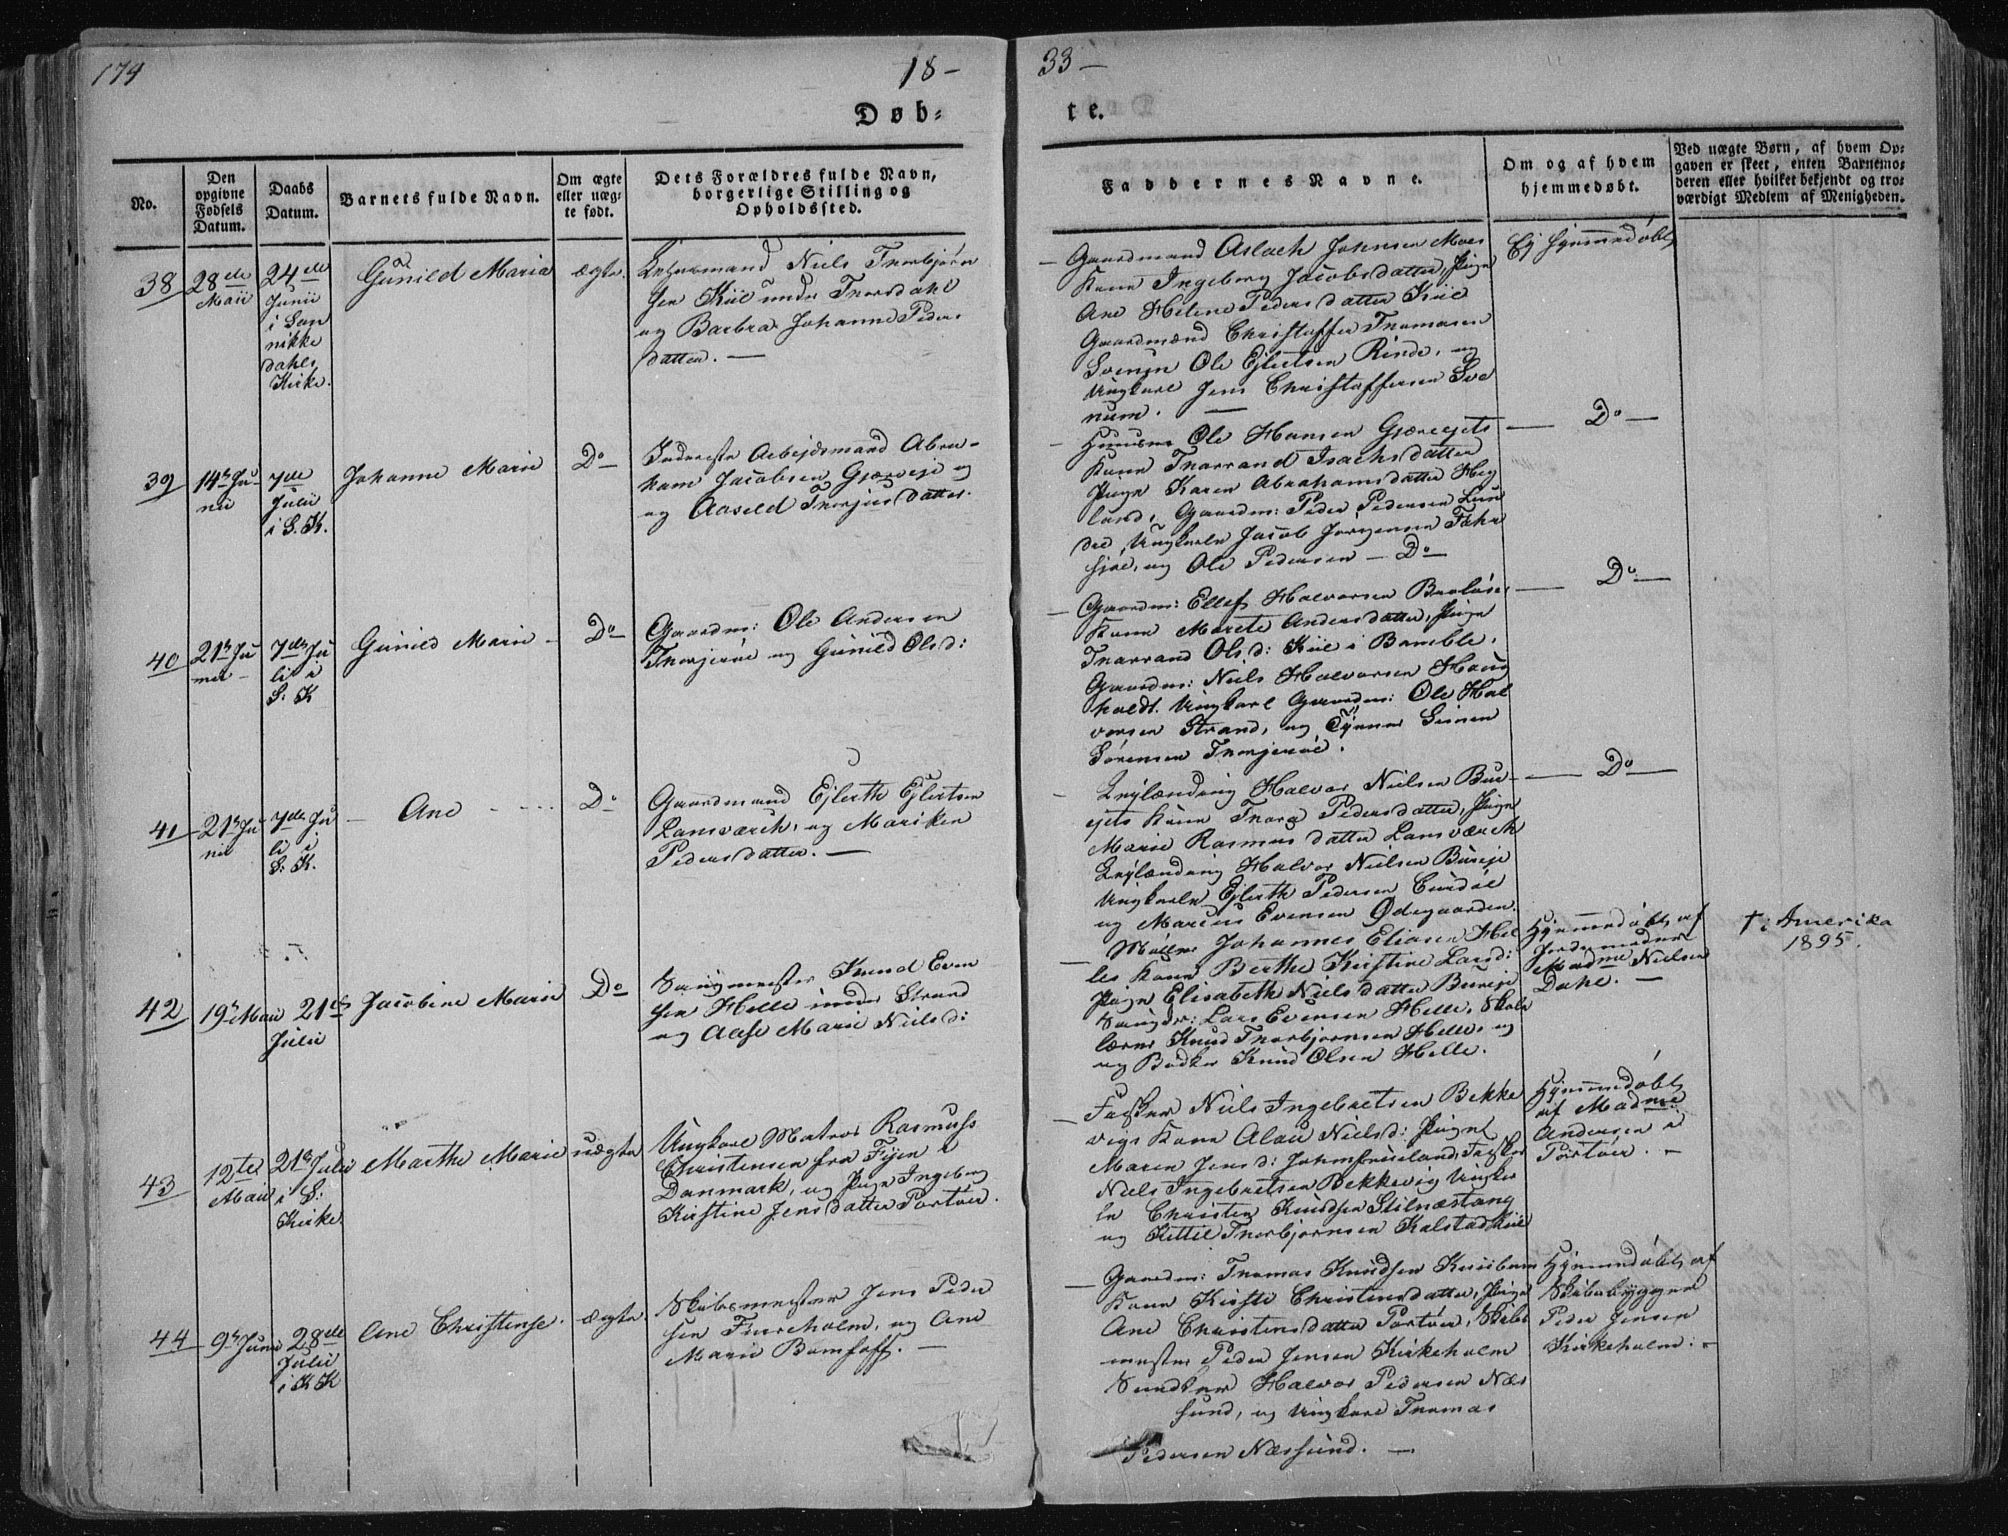 174
18-
33-
Døb-
te.
No.
Den opgivne Fødsels Datum.
Daabs Datum.
Barnets fulde Navn.
Om ægte eller uægte født.
Dets Forældres fulde Navn, borgerlige Stilling og Opholdssted.
Faddernes Navne.
Om og af hvem hjemmedøbt.
Ved uægte Børn, af hvem Opgaven er skeet, enten Barnemoderen eller hvilket bekjendt og troværdigt Medlem af Menigheden.
38
28de
Maii
24de
Junii
i San
nikke
dahls
Kirke.
Gunild Maria
ægte
Niels Thorbjørn
sen Kiil under Thorsdahl
og Barbra Johanne Peders
datter. —
Gaardmand Aslach Johnsen Moes
Kone Ingeborg Jacobsdatter, Pige
Ane Helene Pedersdatter Kiil
Gaardmænd Christoffer Thomasen
Ole Ejlertsen Rinde, og
Ungkarl Jens Christoffersen Sve
num. —
Ej hjemmedøbt
39
14de Ju-
nii
7de
Julii
i S. K.
Johanne Marie
Do
Inderste Arbejdsmand Abra-
ham Jacobsen Gjærveje og
og Aaseld Thorjusdatter.
Ole Hansen Gjærvejets
Kone Tharrand Isachsdatter
Pige Karen Abrahamsdatter Heg
land, Gaardm: Peder Pedersen Lun
dee Ungkarle Jacob Jørgensen
og Ole Pedersen — Do —
— Do —
40
21de Ju
nii
7de Ju
li i
S: K
Gunild Marie
Do
Gaardm: Ole Andersen
og Gunild Olsd:
Gaardm: Ellef Halvorsen
Kone Marete Andersdatter, Pige
Tharrand Olsd: Kiil i Bamble,
Gaardm: Niels Halvorsen Houg
holdt. Ungkarl Gaardm: Ole Hal
vorsen Strand, og
Sørensen
— Do —
41
21de Ju
nii
7de Ju
li i
S. K.
Ane
Do
Gaardmand Ejlerth Ejlertsen
Landsværch, og Mariken
Pedersdatter. —
Leylænding Halvor Nielsen Bur-
ejets Kone Thora Pedersdatter, Pige
Marie Rasmusdatter Landsværch
Leylænding Halvor Nielsen Bureje
Ungkarle Ejlerth Pedersen
og Marius Evensen Ødegaarden.
— Do —
42
19de Maii
21de
Julii
Jacobine Marie
Do
Saugmester Knud Even
sen Helle under Strand
og Aase Marie Nielsd:
Møller Johannes Eliasen Hel
les Kone Berthe Kirstine Larsd:
Pige Elisabeth Nielsdatter Bureje
Lars Evensen Helle, Skole
lærer Knud Thorbjørnsen Helle, og
og Bødker Knud Olsen Helle.
Hjemmedøbt af
Jordemoder
Madme Nielsen
Dahl. —
†: Amerika
1895.
43
12te
Maii
21de Julii
i S:
Kirke
Marthe Marie
uægte
Ungkarl Matros Rasmus
Christensen fra Fyen i
Danmark, og Pige Ingeborg
Kirstine Jensdatter Portøer.
Fisker Niels Ingebretsen Bekke
vigs Kone Alau Nielsd: Pige
Maren Jensd: Fisker
Niels Ingebretsen Bekkevig Ungkar
le Christen Knudsen Stilnæstang
og Kittel Thorbjørnsen Kalstadkiil
Hjemmedøbt
af Madme
Andersen i
Portøer. —
44
9de Junii
28de
Julii
i K K
Ane Christense.
ægte
Skibsmester Jens Peder
sen Furuholm, og Ane
Marie Bomhoff. —
Gaardm: Thomas Knudsen
Kone Kirsti Christensdatter, Pige
Ane Christensdatter Portøer, Skibs
mester Peder Jensen Kirkeholm
Halvor Pedersen Næs
sund, og Ungkarl Thomas
Pedersen Næssund. —
Hjemmedøbt af
Skibsbygger
Peder Jensen
Kirkeholm. —